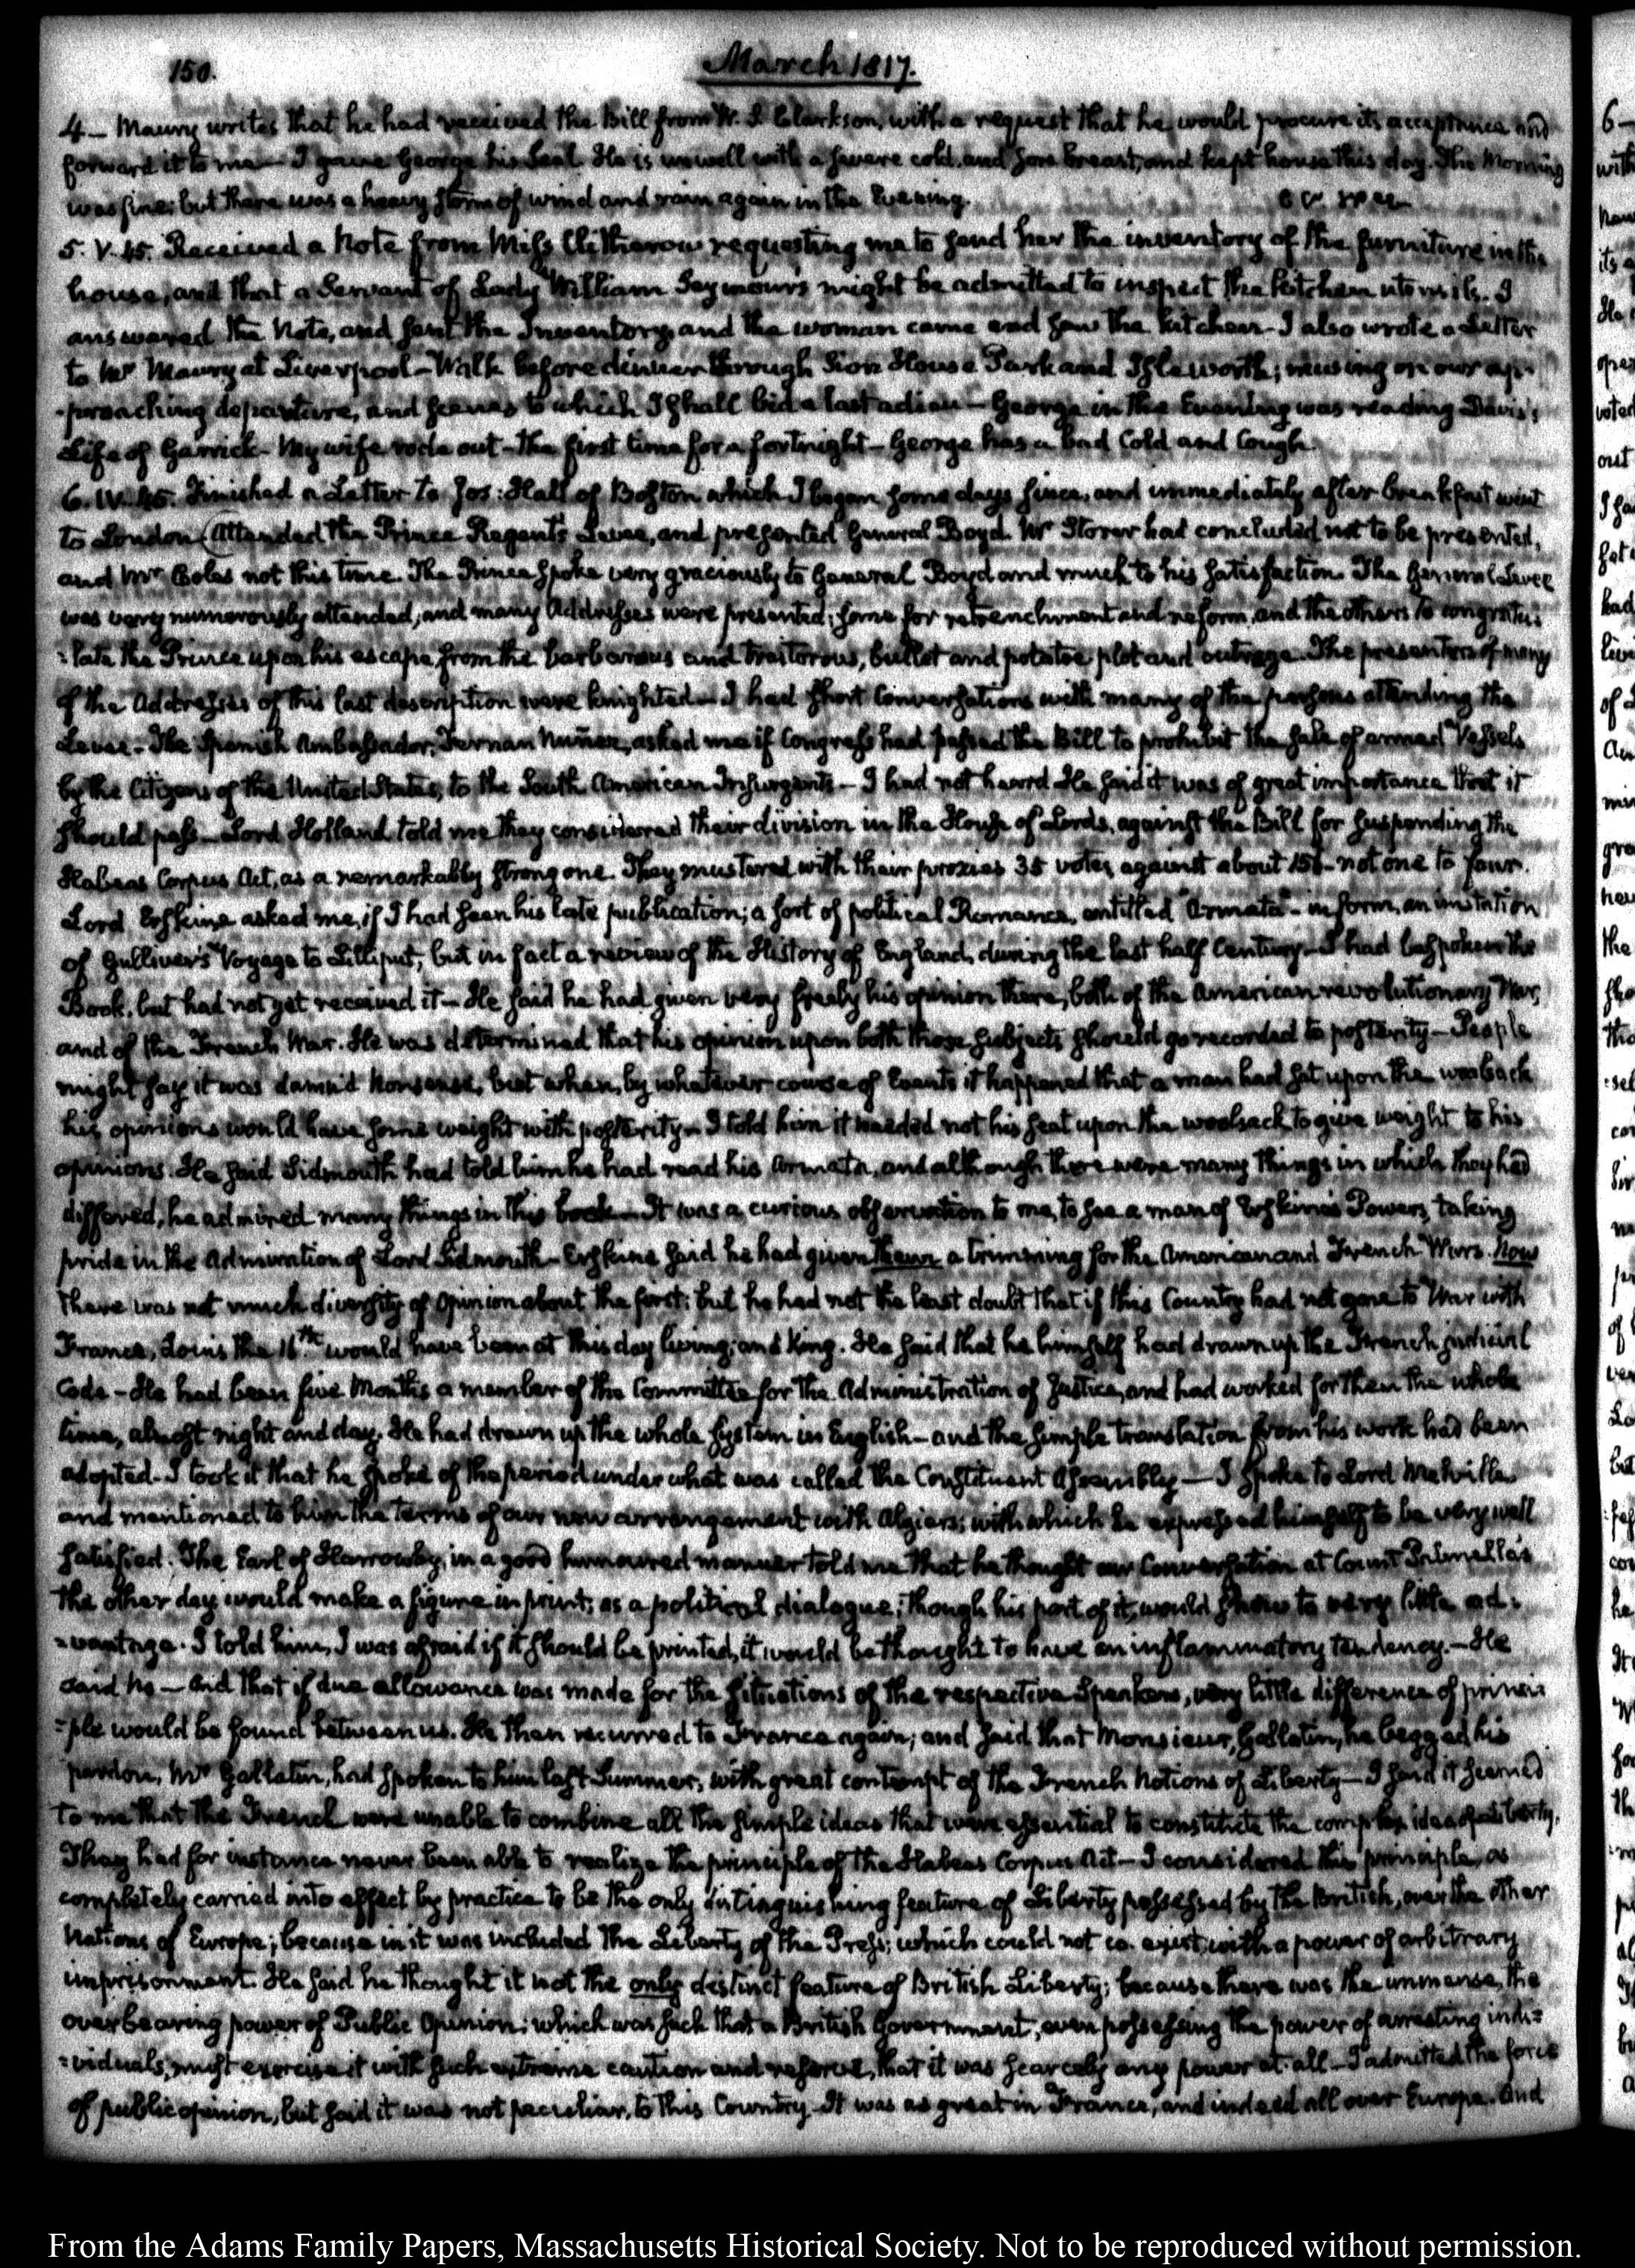 150.
March 1817.
4 — Maury writes that he had received the Bill from W. S. Clarkson, with a request that he would procure its acceptance and
forward it to me — I gave George his Seal. He is unwell with a severe cold, and sore breast, and kept house this day. The Morning
was fine; but there was a heavy storm of wind and rain again in the Evening.
5. V. 45. Received a Note from Miss Clitherow requesting me to send her the inventory of the furniture in the
house, and that a Servant of Lady William Seymour's might be admitted to inspect the kitchen utensils. I
answered the Note, and sent the Inventory, and the woman came and saw the kitchen — I also wrote a Letter
to Mr Maury at Liverpool — Walk before dinner through Sion House Park and Isleworth; musing on our ap-
-proaching departure, and scenes to which I shall bid a last adieu — George in the Evening was reading Davies's
Life of Garrick — My wife rode out — the first time for a fortnight — George has a bad Cold and Cough.
6. IV. 45. Finished a Letter to Jos: Hall of Boston which I began some days since, and immediately after breakfast went
to London (Attended the Prince Regent's Levee, and presented General Boyd. Mr Storer had concluded not to be presented,
and Mr Coles not this time. The Prince spoke very graciously to General Boyd and much to his satisfaction. The General Levee
was very numerously attended, and many Addresses were presented; some for retrenchment and reform, and the others to congratu:
:late the Prince upon his escape from the barbarous and traitorous, bullet and potatoe plot and outrage. The presenters of many
of the Addresses of this last description were knighted — I had short Conversations with many of the persons attending the
Levee — The Spanish Ambassador, Fernan Nuñez, asked me if Congress had passed the Bill to prohibit the sale of armed Vessels
by the Citizens of the United States, to the South American Insurgents — I had not heard. He said it was of great importance that it
should pass — Lord Holland told me they considered their division in the House of Lords, against the Bill for suspending the
Habeas Corpus Act, as a remarkably strong one. They mustered with their proxies 35 votes against about 150 — not one to four.
Lord Erskine asked me, if I had seen his late publication; a sort of political Romance, entitled "Armata" — in form, an imitation
of Gulliver's Voyage to Lilliput; but in fact a review of the History of England, during the last half Century — I had bespoken the
Book, but had not yet received it — He said he had given very freely his opinion there, both of the American revolutionary War,
and of the French War. He was determined that his opinion upon both those subjects should go recorded to posterity — People
might say it was damn'd Nonsense, but when, by whatever course of Events it happened that a man had sat upon the woolsack
his opinions would have some weight with posterity — I told him it needed not his seat upon the woolsack to give weight to his
opinions. He said Sidmouth had told him he had read his Armata, and although there were many things in which they had
differed, he admired many things in this book — It was a curious observation to me, to see a man of Erskine's Powers, taking
pride in the Admiration of Lord Sidmouth — Erskine said he had given them a trimming for the American and French Wars. Now
there was not much diversity of opinion about the first; but he had not the least doubt that if this Country had not gone to War with
France, Louis the 16th would have been at this day living; and King. He said that he himself had drawn up the French judicial
Code — He had been five Months a member of the Committee for the Administration of Justice, and had worked for them the whole
time, almost night and day. He had drawn up the whole system in English — and the simple translation from his work had been
adopted — I took it that he spoke of the period under what was called the Constituent Assembly — I spoke to Lord Melville
and mentioned to him the terms of our new arrangement with Algiers; with which he expressed himself to be very well
satisfied. The Earl of Harrowby, in a good humoured manner told me that he thought our Conversation at Count Palmella's
the other day would make a figure in print; as a political dialogue; though his part of it, would show to very little ad:
:vantage. I told him, I was afraid if it should be printed, it would be thought to have an inflammatory tendency. — He
said No — and that if due allowance was made for the situations of the respective Speakers, very little difference of princi:
:ple would be found between us. He then recurred to France again; and said that Monsieur, Gallatin, he begged his
pardon, Mr Gallatin, had spoken to him last Summer, with great contempt of the French Notions of Liberty — I said it seemed
to me that the French were unable to combine all the simple ideas that were essential to constitute the complex idea of Liberty.
They had for instance never been able to realize the principle of the Habeas Corpus Act — I considered this principle, as
completely carried into effect by practice to be the only distinguishing feature of Liberty possessed by the British, over the other
Nations of Europe; because in it was included the Liberty of the Press; which could not co-exist with a power of arbitrary
imprisonment. He said he thought it not the only distinct feature of British Liberty; because there was the immense, the
overbearing power of Public Opinion; which was such that a British Government, even possessing the power of arresting indi=
=viduals, must exercise it with such extreme caution and reserve, that it was scarcely any power at all — I admitted the force
of public opinion, but said it was not peculiar, to this Country. It was as great in France, and indeed all over Europe. And
From the Adams Family Papers, Massachusetts Historical Society. Not to be reproduced without permission.